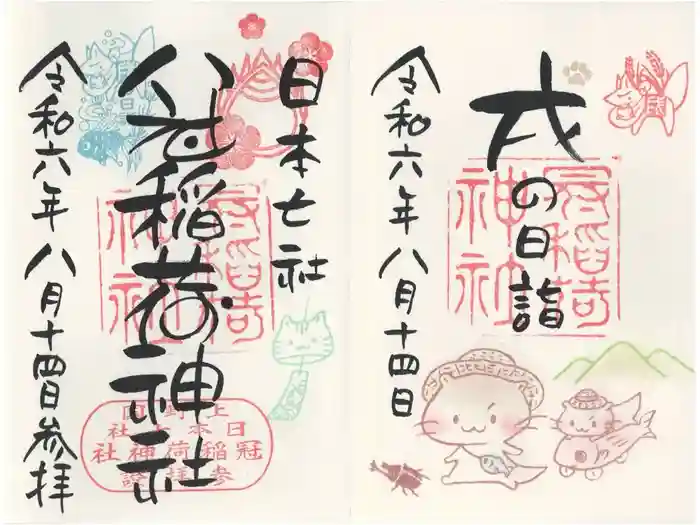 戌の日詣
冠稲荷
神社
令和六年八月十四日
日本七社
冠稲荷神社
冠稲荷
神社
上野国
日本七社
冠稲荷神社
参拝證
令和六年八月十四日参拝